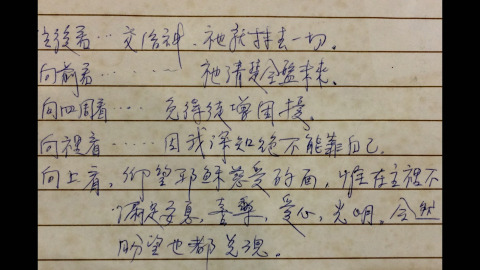 往後看…交給神、祂就抹去一切.
向前看………祂清楚全盤未來.
向四周看……免得徒增困擾.
向裡看……因我深知絕不能靠自己.
向上看,仰望耶穌慈愛的面,惟在主裡不
滿足安息,喜樂,愛心,光明.全然
盼望也都兌現.